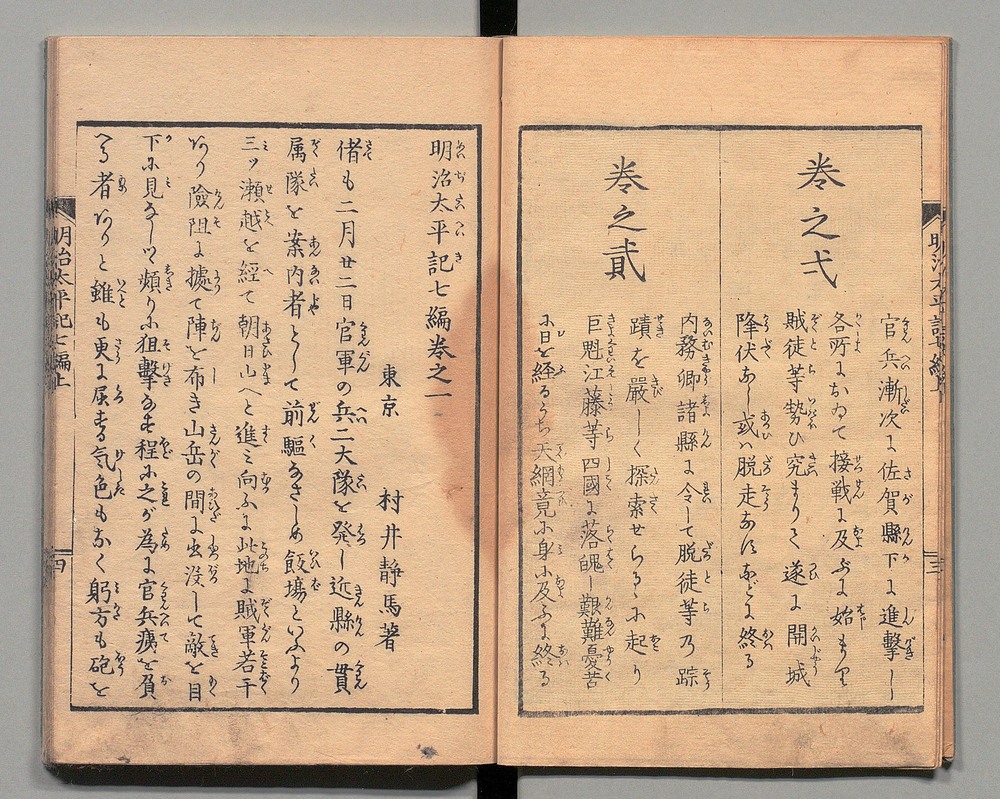 巻之弌
官兵漸次に佐賀縣下に進撃し
各所において接戦に及ぶに始まり
賊徒等勢ひ究まりて遂に開城
降伏なし或ハ脱走なすなどに終る
巻之貳
内務卿諸縣に令して脱徒等乃踪
蹟を嚴しく探索せらるゝに起り
巨魁江藤等四國に落魄し艱難憂苦
に日を経るうち天網竟に身に及ぶに終る
明治太平記七編上
三
明治太平記七編巻之一
東京 村井静馬著
偖も二月廿二日官軍の兵二大隊を発し近縣の貫
属隊を案内者として前驅なさしめ飯場といふより
三ツ瀬越を經て朝日山へと進み向ふに此地に賊軍若干
ありて險阻に據て陣を布き山岳の間に出没して敵を目
下に見なしツヽ頻りに狙撃なす程に之が為に官兵痍を負
へる者ありと雖も更に屈する気色もなく躬方も砲を
明治太平記七編上
四